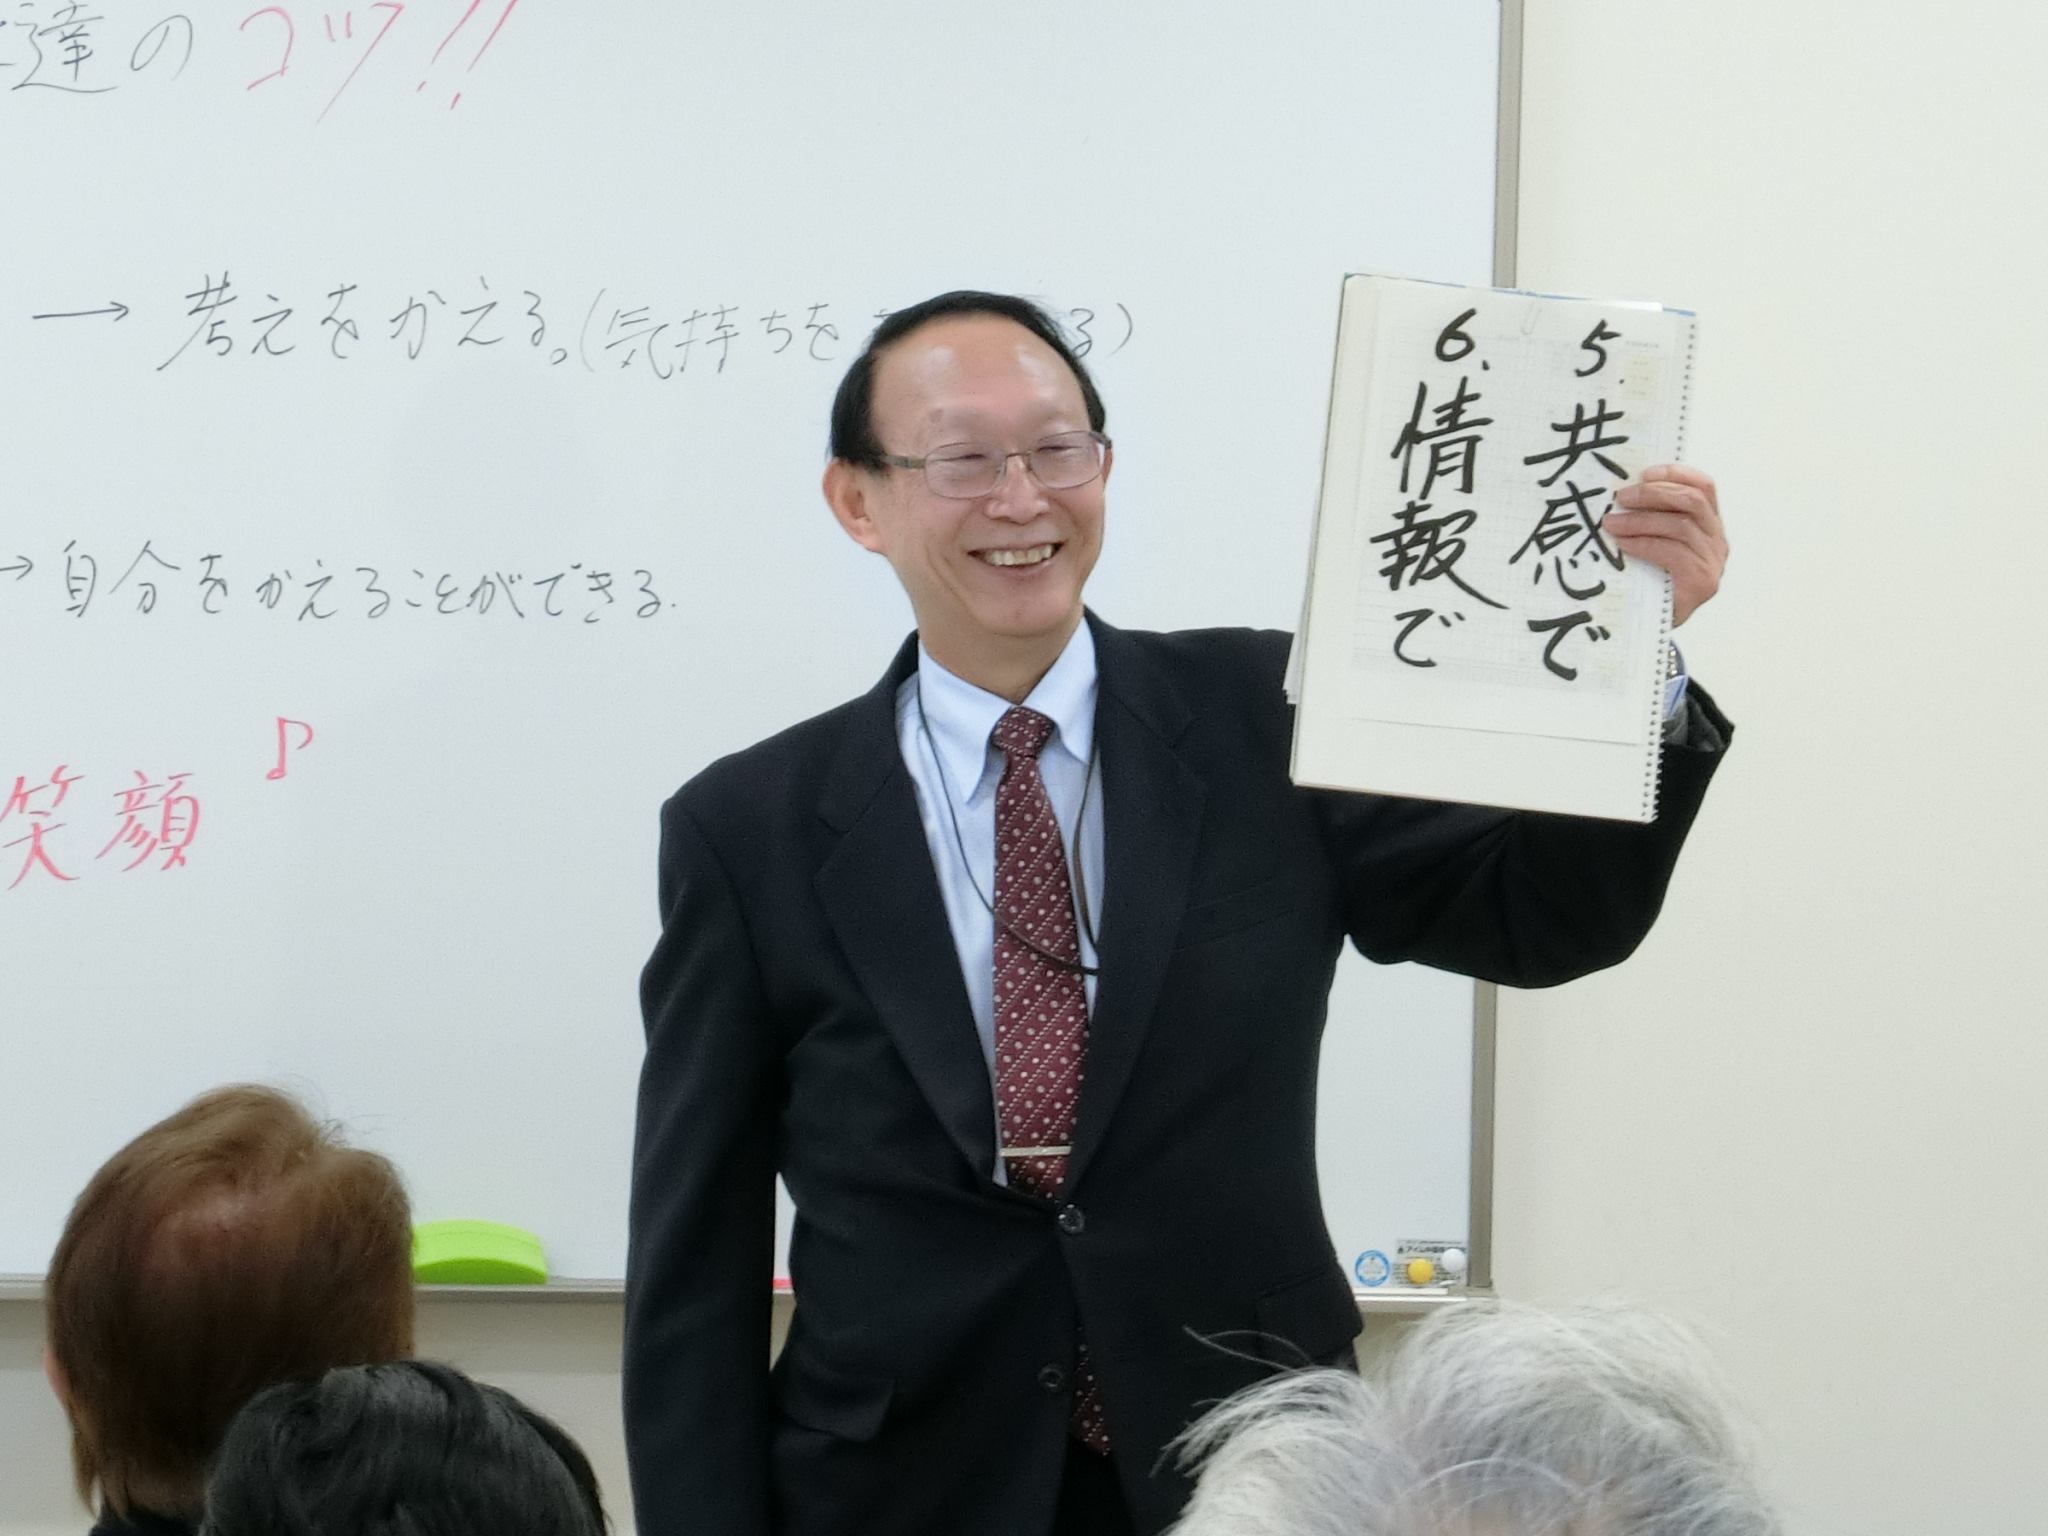 達のコツ!!
→ 考えをかえる。(気持ちを
る)
→ 自分をかえることができる.
笑顔♪
5.共感で
6.情報で